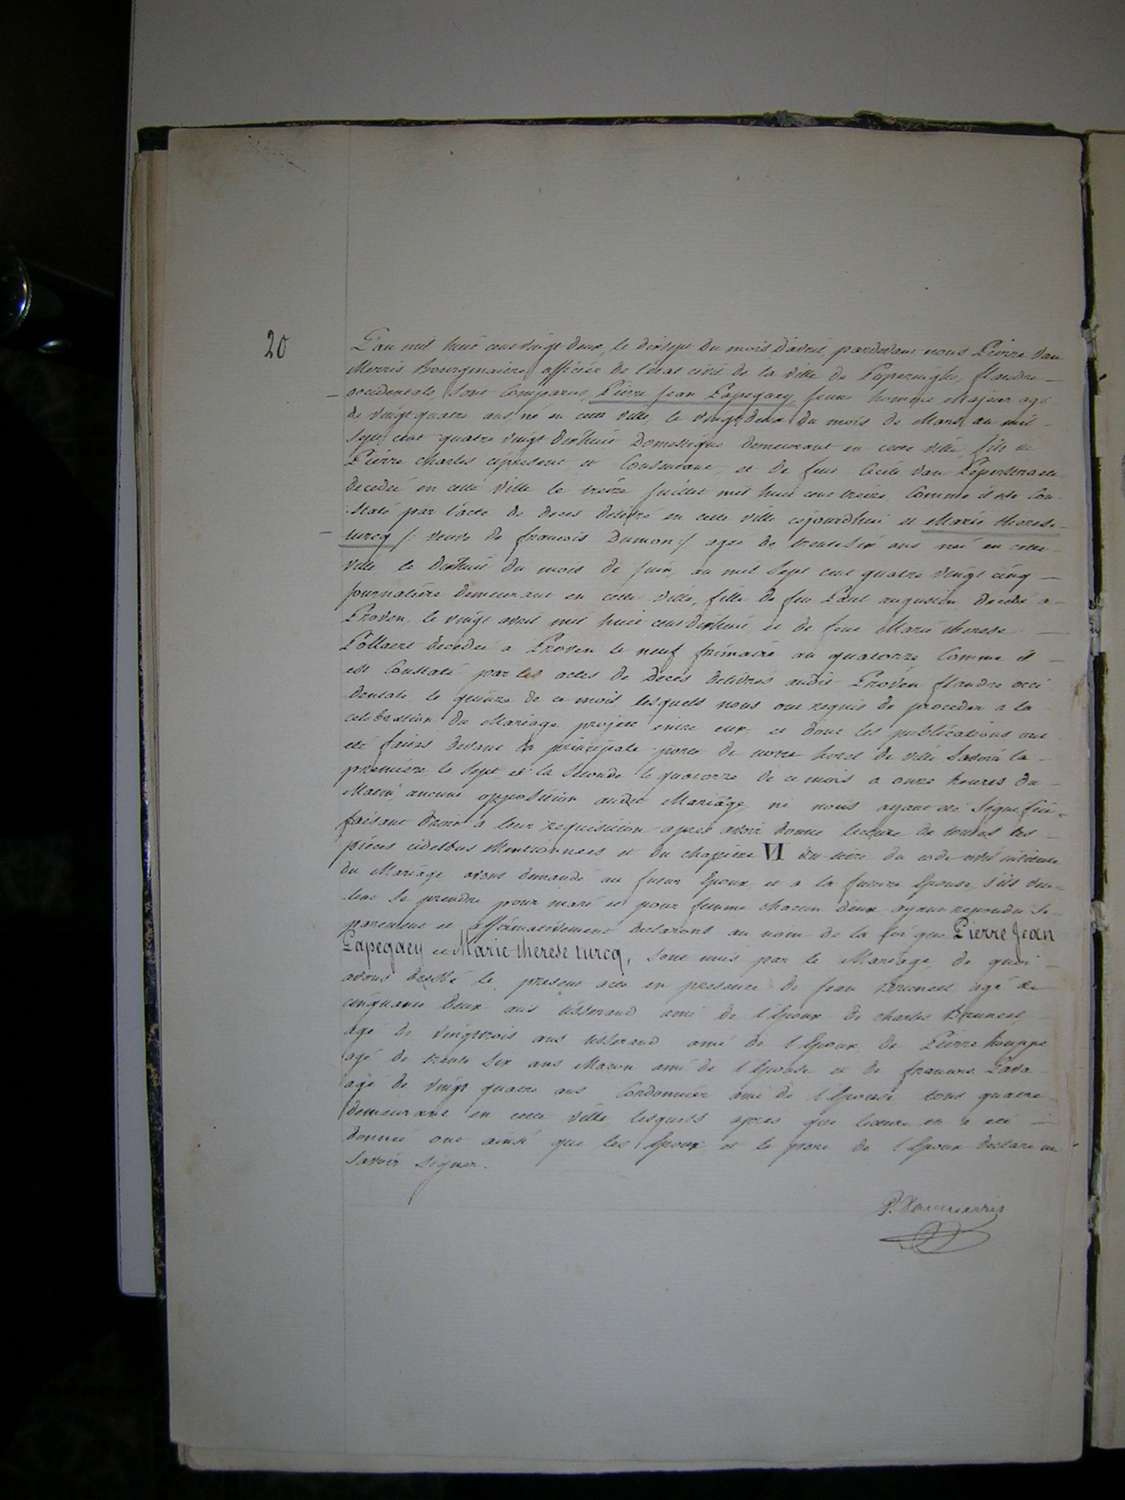 20
L'an mil huit cent vingt deux, le dixsept du mois d'avril pardevant nous Pierre Van
Merris Bourgmaitre officier de l'état civil de la ville de Poperinghe, flandre
occidentale sont Comparus Pierre Jean Papegaey jeune homme Majeur agé
de vingt quatre ans né en cette ville, le vingt deux du mois de Mars an mil
sept cent quatre vingt dixhuit Domestique demeurant en cette ville, fils de
Pierre Charles ciprésent et Consentant, et de feue Cecile Van
decedée en cette Ville le treize Juillet mil huit cent treize, Comme il est Con-
staté par l'acte de deces delivré en cette ville cejourdhui et Marie therese
turcq /: veuve de francois Dumon :/ agée de trente six ans née en cette
ville le dixhuit du mois de Juin, an mil sept cent quatre vingt cinq
journaliére demeurant en cette ville, fille de feu Paul augustin decedé a
Proven le vingt avril mil huit cent dixhuit, et de feue Marie therese
Pollaert decedée a Proven le neuf frimaire an quatorze Comme il
est Constaté par les actes de Decès delivrés audit Proven flandre occi
dentale le quinze de ce mois lesquels nous ont requis de proceder a la
celebration du Mariage projeté entre eux et dont les publications ont
été faites devant la principale porte de notre hotel de ville Savoir la
premiere le sept et la seconde le quatorze de ce mois a onze heures du
Matin aucune opposition audit Mariage ne nous ayant été signifiée,
faisant droit a leur requisition apres avoir donné lecture de toutes les
piéces cidessus Mentionnées et du chapitre VI du titre du code civil intitulé
du Mariage avons demandé au futur Epoux et a la future Epouse s'ils veu-
lent se prendre pour mari et pour femme chacun d'eux ayant repondu se-
parement et affirmativement declarons au nom de la loi que Pierre Jean
Papegaey et Marie therese turcq, sont unis par le Mariage, de quoi
avons dressé le present acte en presence de Jean Bruneel agé de
cinquante deux ans tisserand ami de l'Epoux de charles Bruneel
agé de vingt trois ans tisserand ami de l'Epoux de Pierre
agé de trente six ans Macon ami de l'Epouse et de francois
agé de vingt quatre ans Cordonnier ami de l'Epouse tous quatre
demeurans en cette ville lesquels apres que lecture en a été
donnée ont ainsi que les Epoux et le pere de l'Epoux declaré ne
savoir signer.
P. Vanmerris